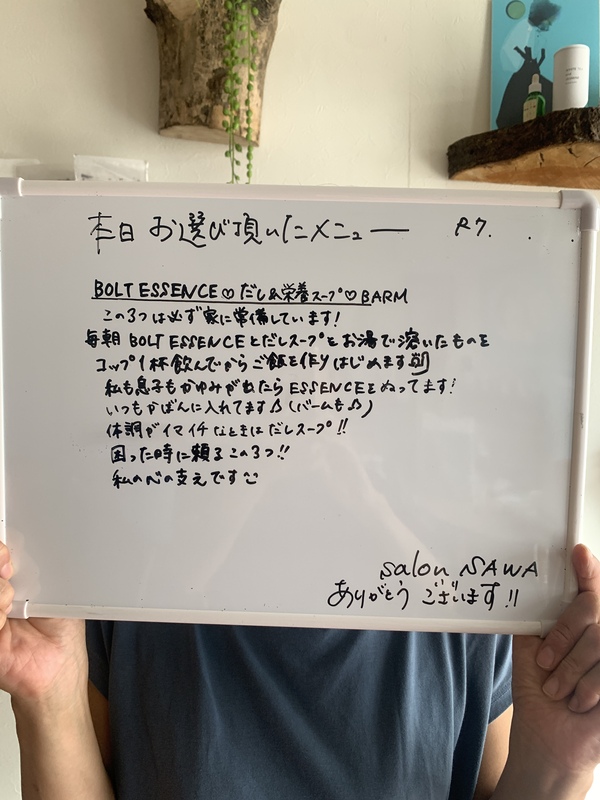 本日 お選び頂いたメニュー R7. . .
BOLT ESSENCE♡だし&栄養スープ♡BARM
この3つは必ず家に常備しています!
毎朝 BOLT ESSENCEとだしスープをお湯で溶いたものを
コップ1杯飲んでからご飯を作りはじめます
私も息子もかゆみがでたら ESSENCEをぬってます!
いつもかばんに入れてます♪(バームも♪)
体調がイマイチなときはだしスープ!!
困った時に頼るこの3つ!!
私の心の支えです
salon SAWA
ありがとうございます!!